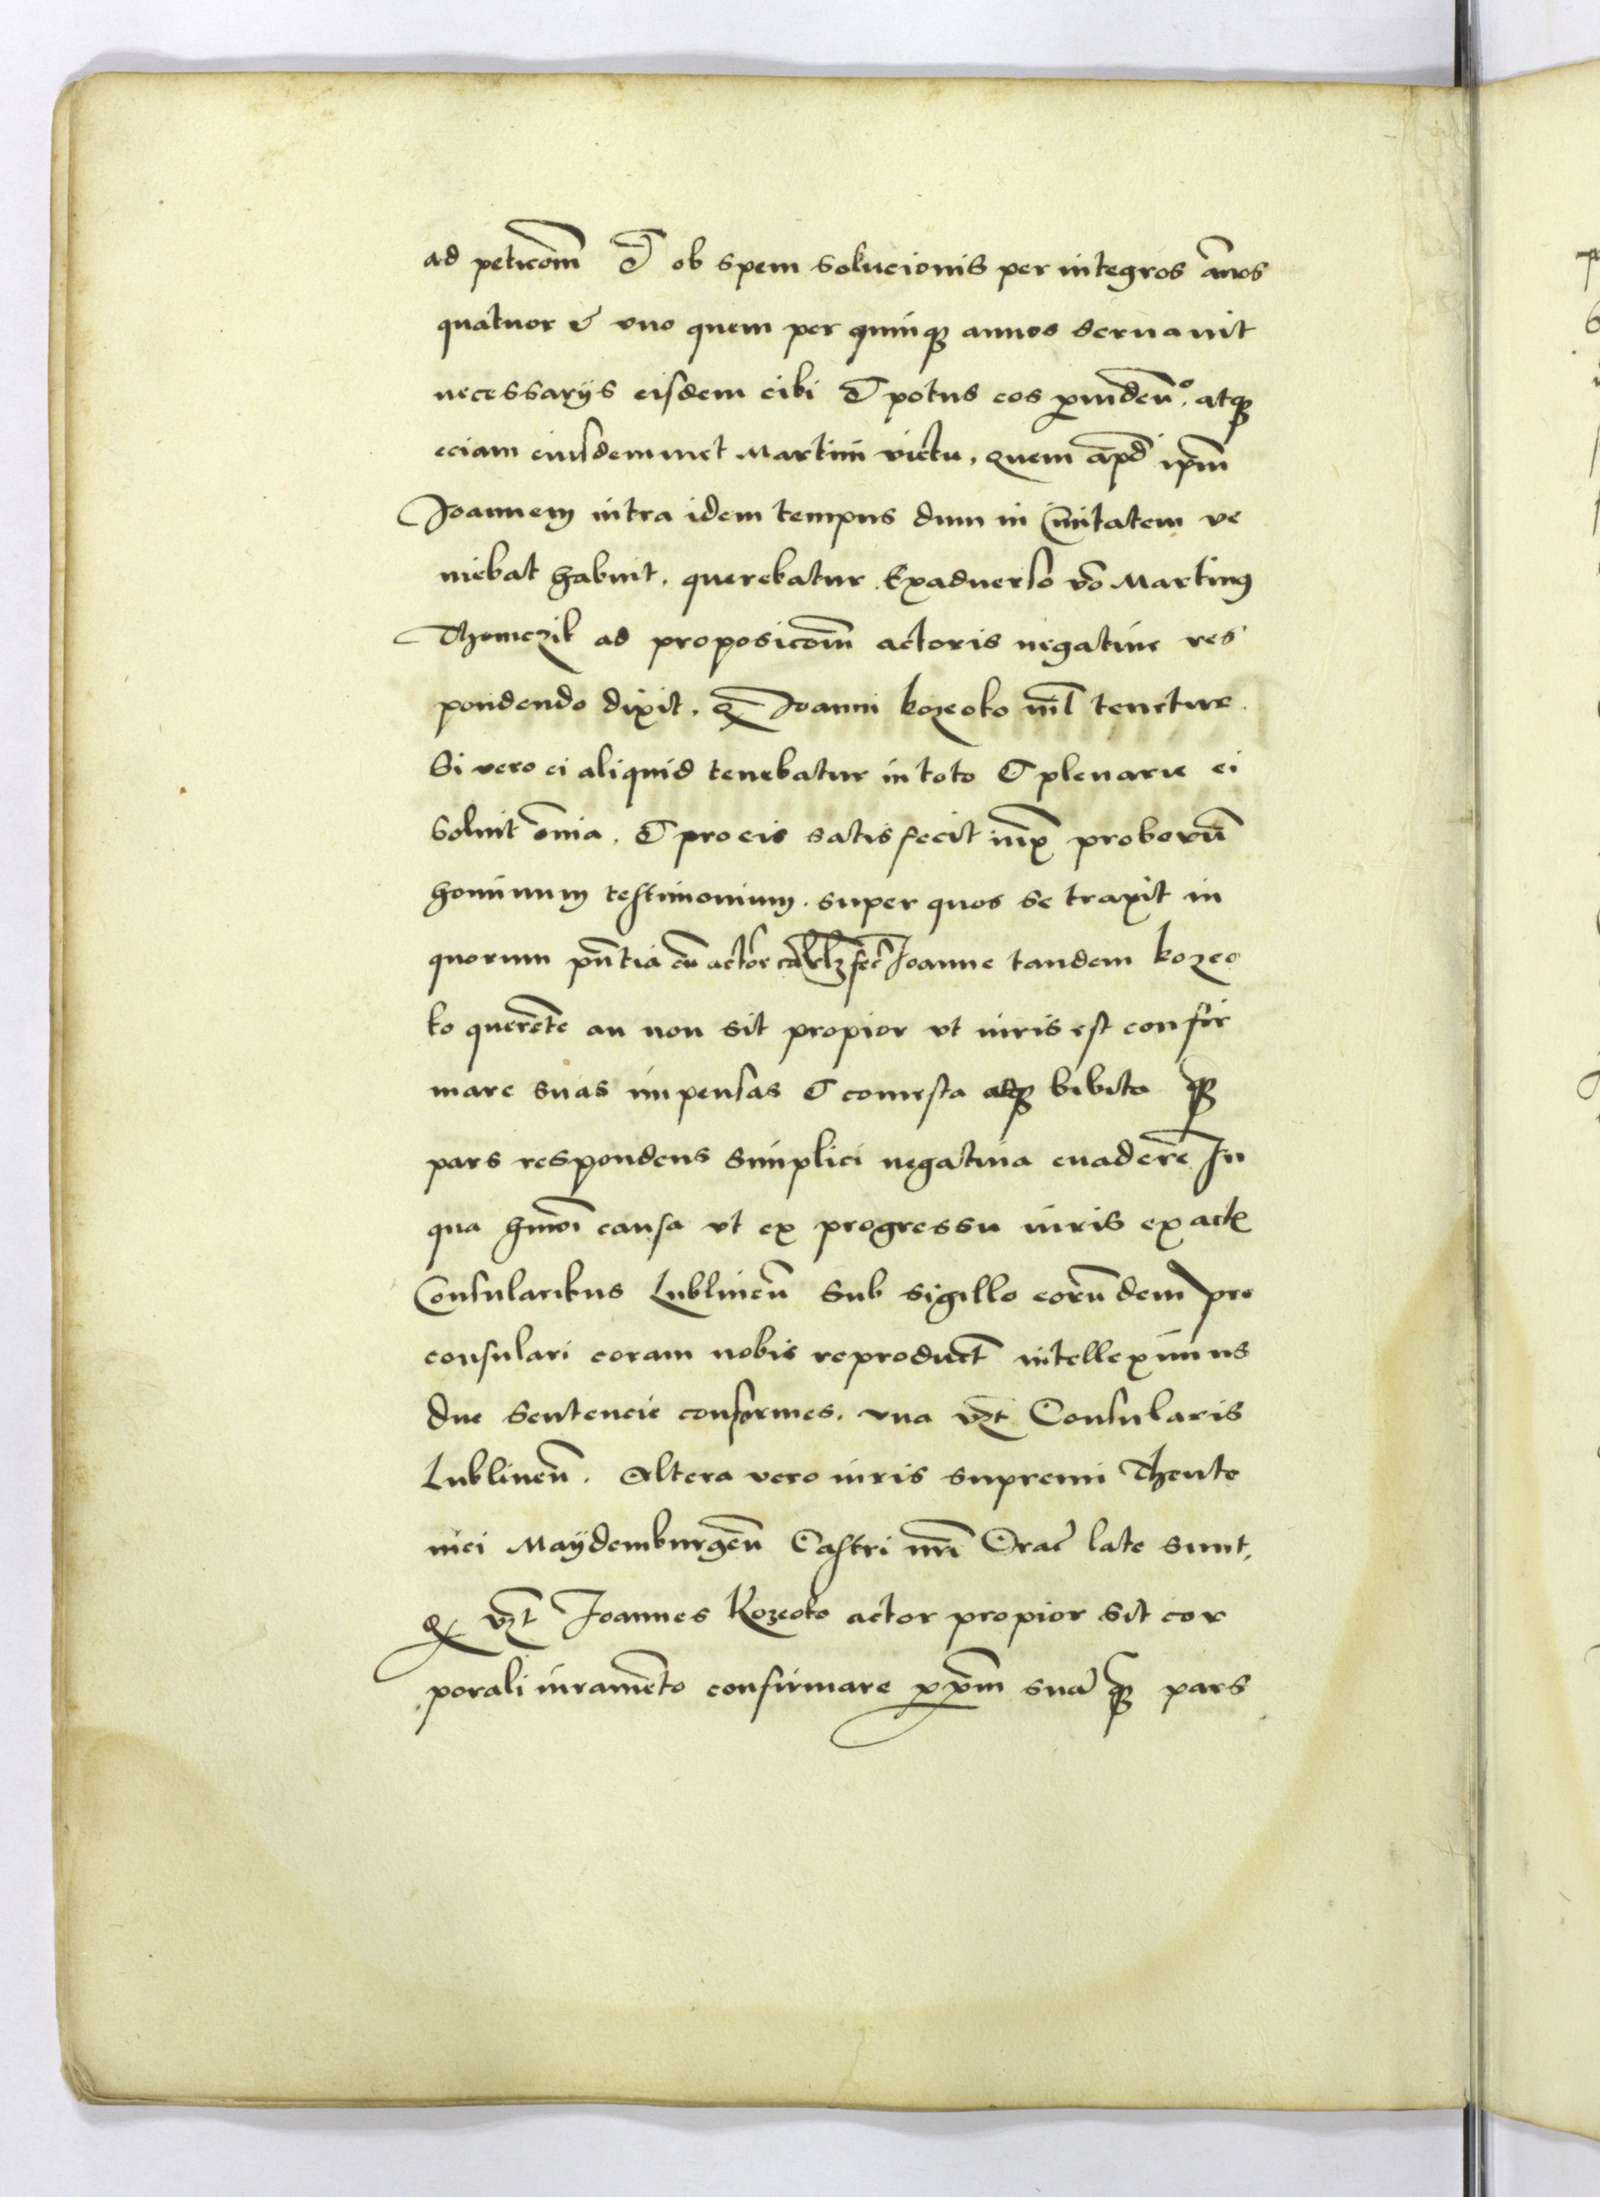 ad peticom̄ & ob spem solucionis per integros ān̄os
quatuor & vno quem per quinq̢ annos seruauit
necessarijs eisdem cibi & potus eos ꝓuiden̄º. atq̢
eciam eiusdemmet Martini victu. quem apd̄ ip̄m
Joannem intra idem tempus dum in Ciuitatem ve
niebat habuit. querebatur. Exaduerso vo Martinꝰ
Thomczik ad proposicom̄ actoris negatiue res
pondendo dixit. q̢ Joanni kozeoko nil̄ tenetur.
Si vero ei aliquid tenebatur in toto & plenarie ei
soluit om̄ia. & pro eis satisfecit iux̄ proborū
hominum testimonium. super quos se traxit in
quorum pn̄tia cū actore Joanne tandem kozeo
ko querēte an non sit propior vt iuris est confir
mare suas impensas & comesta atq̢ bibita q̢
pars respondens simplici negatiua euadere In
qua hmōi causa vt ex progressu iuris ex act̢
Consularibus Lublineñ sub sigillo eorūdem pro
consulari coram nobis reproduct̄ intelleximus
due sentencie conformes. vna vz̄t Consularis
Lublineñ. Altera vero iuris supremi Theuto
nici Maydemburgeñ Castri nr̄i Crac̄ late sunt.
q̢ vz̄t Joannes Kozeoko actor propior sit cor
porali iuramēto confirmare ꝓpōm̄ suā q̢ pars